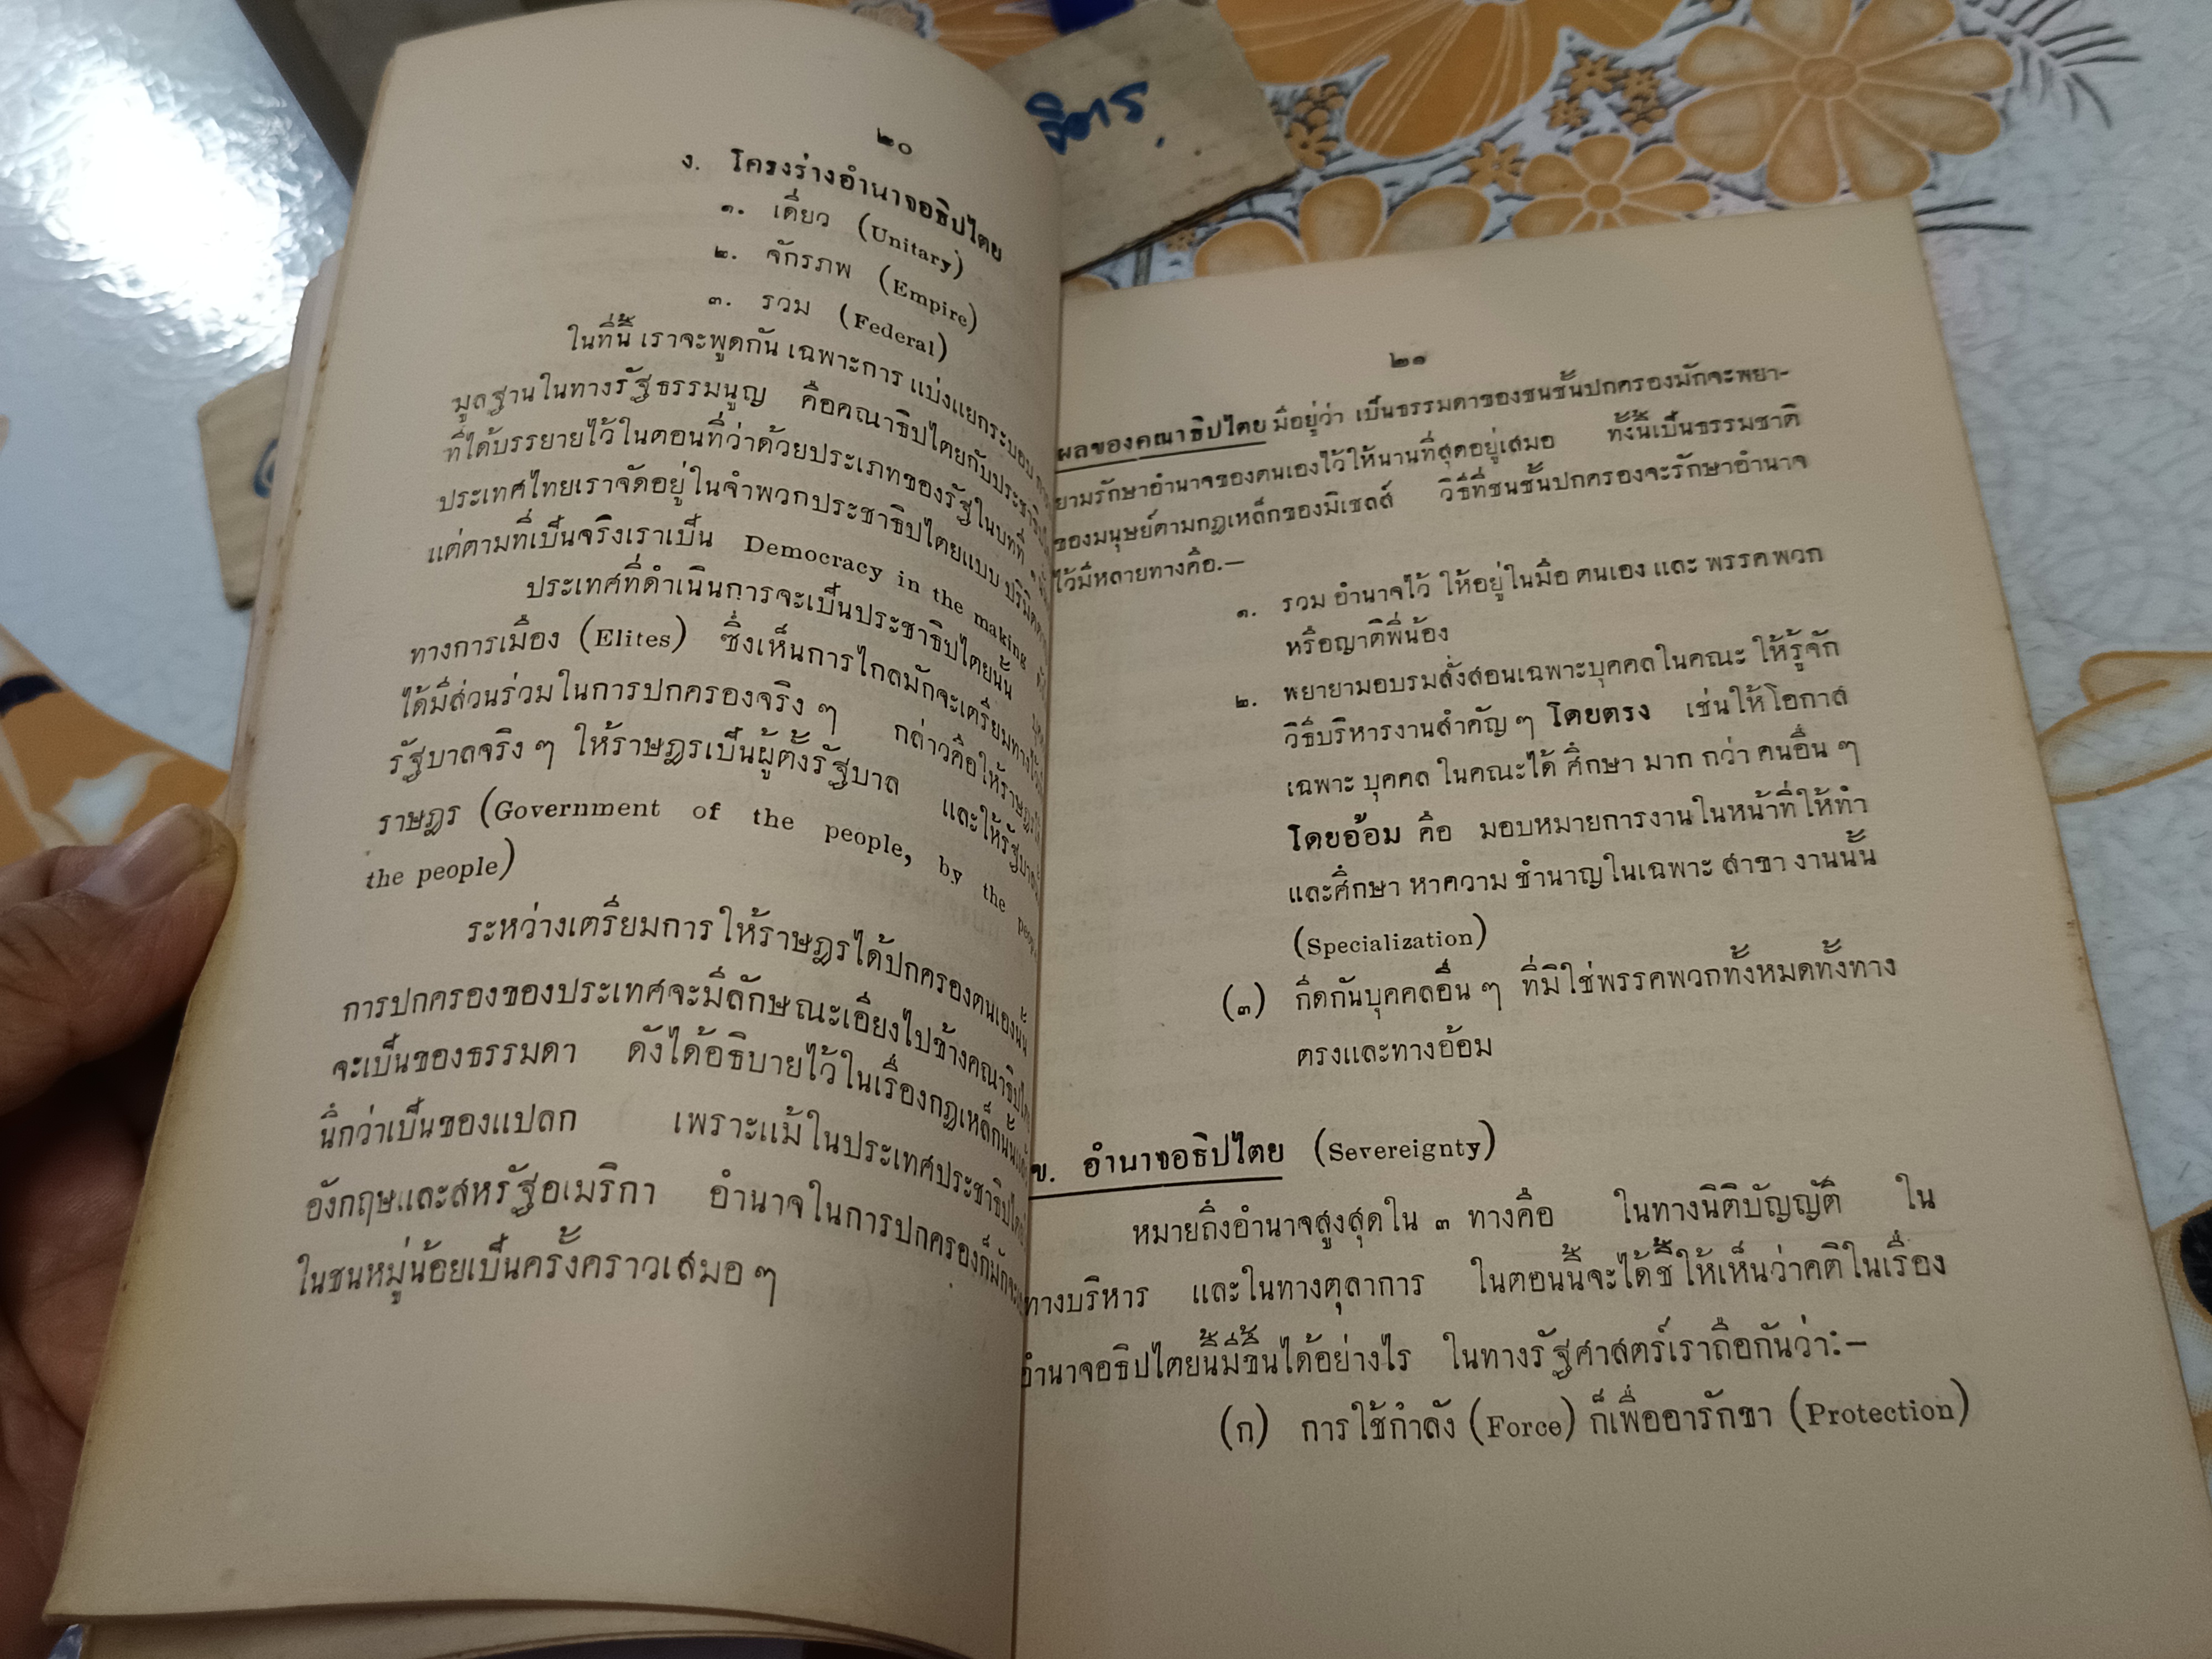 จิตร
๒๐
ง. โครงร่างอำนาจอธิปไตย
๑. เดี่ยว (Unitary)
๒. จักรภพ (Empire)
๓. รวม (Federal)
ในที่นี้ เราจะพูดกัน เฉพาะการ แบ่งแยกระบอบ
มูลฐานในทางรัฐธรรมนูญ คือคณาธิปไตยกับประชาธิปไตย
ที่ได้บรรยายไว้ในตอนที่ว่าด้วยประเภทของรัฐในบทที่ ๑
ประเทศไทยเราจัดอยู่ในจำพวกประชาธิปไตยแบบ
แต่ตามที่เป็นจริงเราเป็น Democracy in the making
ประเทศที่ดำเนินการจะเป็นประชาธิปไตยนั้น
ทางการเมือง (Elites) ซึ่งเห็นการไกลมักจะเตรียมทางไว้
ได้มีส่วนร่วมในการปกครองจริง ๆ กล่าวคือให้ราษฎร
รัฐบาลจริง ๆ ให้ราษฎรเป็นผู้ตั้งรัฐบาล และให้รัฐบาล
ราษฎร (Government of the people, by the people
the people)
ระหว่างเตรียมการ ให้ราษฎรได้ปกครองตนเองนั้น
การปกครองของประเทศจะมีลักษณะเอียงไปข้างคณาธิปไตย
จะเป็นของธรรมดา ดังได้อธิบายไว้ในเรื่องกฎเหล็กนั้นแล้ว
นึกว่าเป็นของแปลก เพราะแม้ในประเทศประชาธิปไตย
อังกฤษและสหรัฐอเมริกา อำนาจในการปกครองก็มักจะ
ในชนหมู่น้อยเป็นครั้งคราวเสมอ ๆ
๒๑
ผลของคณาธิปไตย มีอยู่ว่า เป็นธรรมดาของชนชั้นปกครองมักจะพยา-
ยามรักษาอำนาจของตนเองไว้ให้นานที่สุดอยู่เสมอ ทั้งนี้เป็นธรรมชาติ
ของมนุษย์ตามกฎเหล็กของมิเชลส์ วิธีที่ชนชั้นปกครองจะรักษาอำนาจ
ไว้มีหลายทางคือ.—
๑. รวม อำนาจไว้ ให้อยู่ในมือ ตนเอง และ พรรคพวก
หรือญาติพี่น้อง
๒. พยายามอบรมสั่งสอนเฉพาะบุคคลในคณะ ให้รู้จัก
วิธีบริหารงานสำคัญ ๆ โดยตรง เช่นให้โอกาส
เฉพาะ บุคคล ในคณะได้ ศึกษา มาก กว่า คนอื่น ๆ
โดยอ้อม คือ มอบหมายการงานในหน้าที่ให้ทำ
และศึกษา หาความ ชำนาญในเฉพาะ สาขา งานนั้น
(Specialization)
(๓) กีดกันบุคคลอื่น ๆ ที่มิใช่พรรคพวกทั้งหมดทั้งทาง
ตรงและทางอ้อม
ข. อำนาจอธิปไตย (Severeignty)
หมายถึงอำนาจสูงสุดใน ๓ ทางคือ ในทางนิติบัญญัติ ใน
ทางบริหาร และในทางตุลาการ ในตอนนี้จะได้ชี้ให้เห็นว่าคติในเรื่อง
อำนาจอธิปไตยนี้มีขึ้นได้อย่างไร ในทางรัฐศาสตร์เราถือกันว่า:—
(ก) การใช้กำลัง (Force) ก็เพื่ออารักขา (Protection)